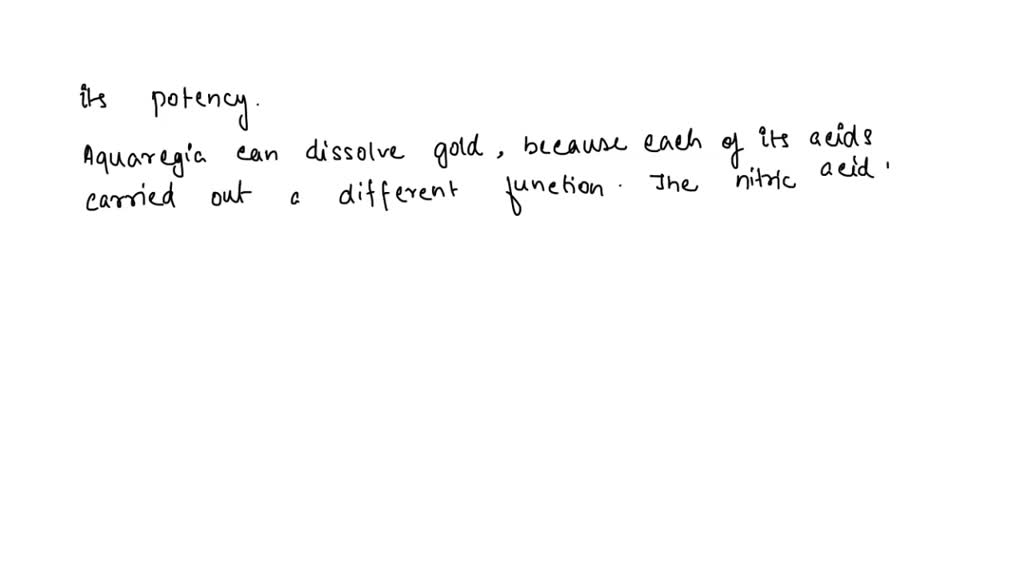 its potency.
Aquaregia can dissolve gold, because each of its acids
carried out a different function. The nitric acid